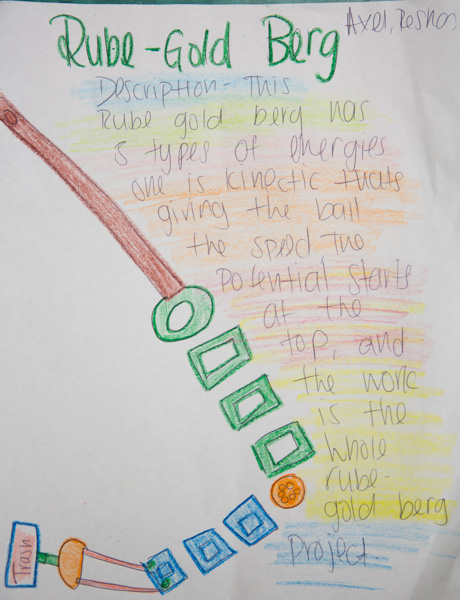 Rube-Gold Berg
Axel, Reshon
Description- This
Rube gold berg has
3 types of energies
one is kinectic thats
giving the ball
the speed The
potential starts
at the
top, and
the work
is the
whole
rube-
gold berg
Project
Trash